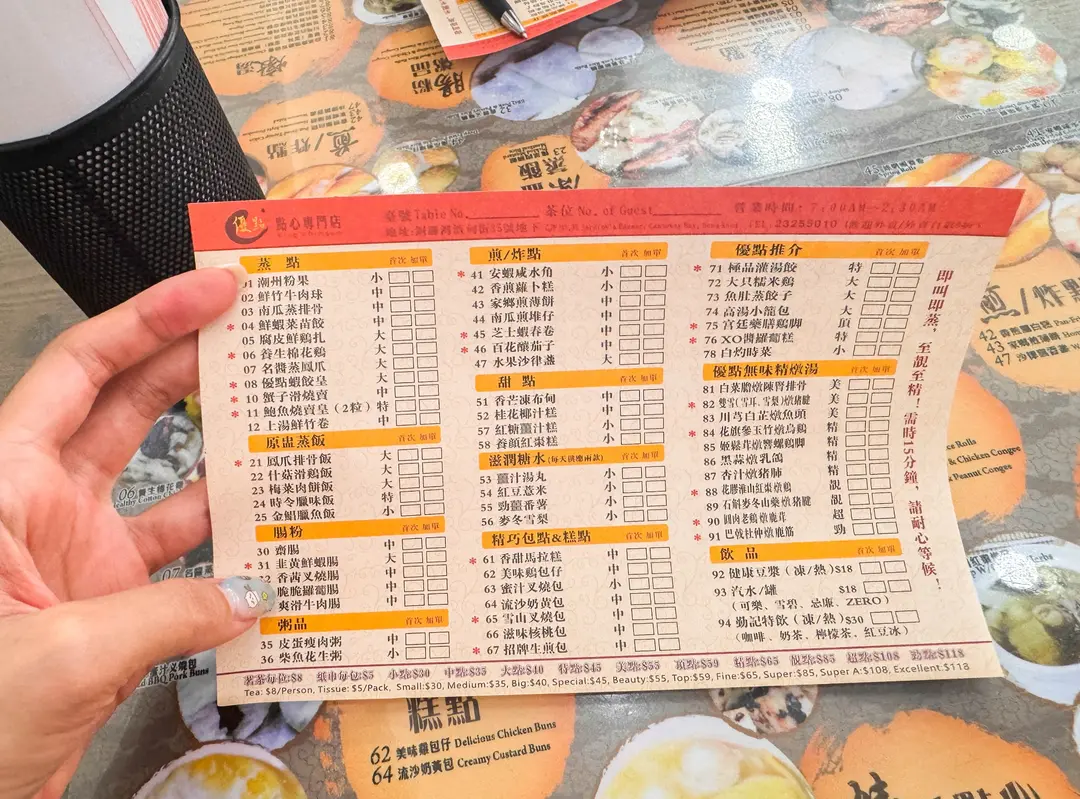 優點 點心專門店 臺號 Table No. 茶位 No. of Guest 營業時間：7:00AM～2:30AM
蒸點 首次 加單
01 潮州粉果 小
02 鮮竹牛肉球 中
03 南瓜蒸排骨 中
04 鮮蝦菜苗餃 中
05 腐皮鮮鷄扎 大
06 養生棉花鷄 大
07 名醬蒸鳳爪 大
08 優點蝦餃皇 大
10 蟹子滑燒賣 中
11 鮑魚燒賣皇（2粒）特
12 上湯鮮竹卷 中
原盅蒸飯 首次 加單
21 鳳爪排骨飯 大
22 什菇滑鷄飯 大
23 梅菜肉餅飯 中
24 時令臘味飯 特
25 金鯧臘魚飯 小
腸粉 首次 加單
30 齋腸 中
31 韭黃鮮蝦腸 大
香茜叉燒腸 中
脆脆蘿蔔腸 中
爽滑牛肉腸 中
粥品
35 皮蛋瘦肉粥 中
36 柴魚花生粥 小
煎/炸點 首次 加單
41 安蝦咸水角 小
42 香煎蘿卜糕 小
43 家鄉煎薄餅 中
44 南瓜煎堆仔 中
45 芝士蝦春卷 中
46 百花釀茄子 中
47 水果沙律盞 大
甜點 首次 加單
51 香芒凍布甸 中
52 桂花椰汁糕 中
57 紅糖薑汁糕 小
58 養顏紅棗糕 小
滋潤糖水（每天供應兩款） 首次 加單
53 薑汁湯丸 小
54 紅豆薏米 小
55 勁薑番薯 小
56 麥冬雪梨 小
精巧包點&糕點 首次 加單
61 香甜馬拉糕 中
62 美味鷄包仔 中
63 蜜汁叉燒包 小
64 流沙奶黃包 中
65 雪山叉燒包 中
66 滋味核桃包 中
67 招牌生煎包 中
優點推介 首次 加單
71 極品灌湯餃 特
72 大只糯米鷄 大
73 魚肚蒸餃子 大
74 高湯小籠包 大
75 宮廷藥膳鷄脚 頂
76 XO醬羅蔔糕 特
78 白灼時菜 小
優點無味精燉湯 首次 加單
81 白菜膽燉陳腎排骨 美
82 雙雪（雪耳、雪梨）燉猪腱 美
83 川芎白芷燉魚頭 美
84 花旗參玉竹燉烏鷄 精
85 姬鬆茸燉響螺鷄脚 精
86 黑蒜燉乳鴿 精
87 杏汁燉猪肺 精
88 花膠淮山紅棗燉鷄 靚
89 石斛麥冬山藥燉猪腱 靚
90 圓肉老鷄燉鹿茸 超
91 巴戟杜仲燉鹿筋 勁
飲品 首次 加單
92 健康豆漿（凍/熱）$18
93 汽水/罐 $18
（可樂、雪碧、忌廉、ZERO）
94 勤記特飲（凍/熱）$30
（咖啡、奶茶、檸檬茶、紅豆冰）
即叫即蒸，至靚至精！需時15分鐘，請耐心等候！
茗茶每位$8 紙巾每包$5 小點$30 中點$35 大點$40 特點$45 美點$55 頂點$59 精點$65 靚點$85 超點$108 勁點$118
Tea: $8/Person, Tissue: $5/Pack, Small:$30, Medium:$35, Big:$40, Special:$45, Beauty:$55, Top:$59, Fine:$65, Super:$85, Super A:$108, Excellent:$118
糕點
62 美味雞包仔 Delicious Chicken Buns
64 流沙奶黃包 Creamy Custard Buns